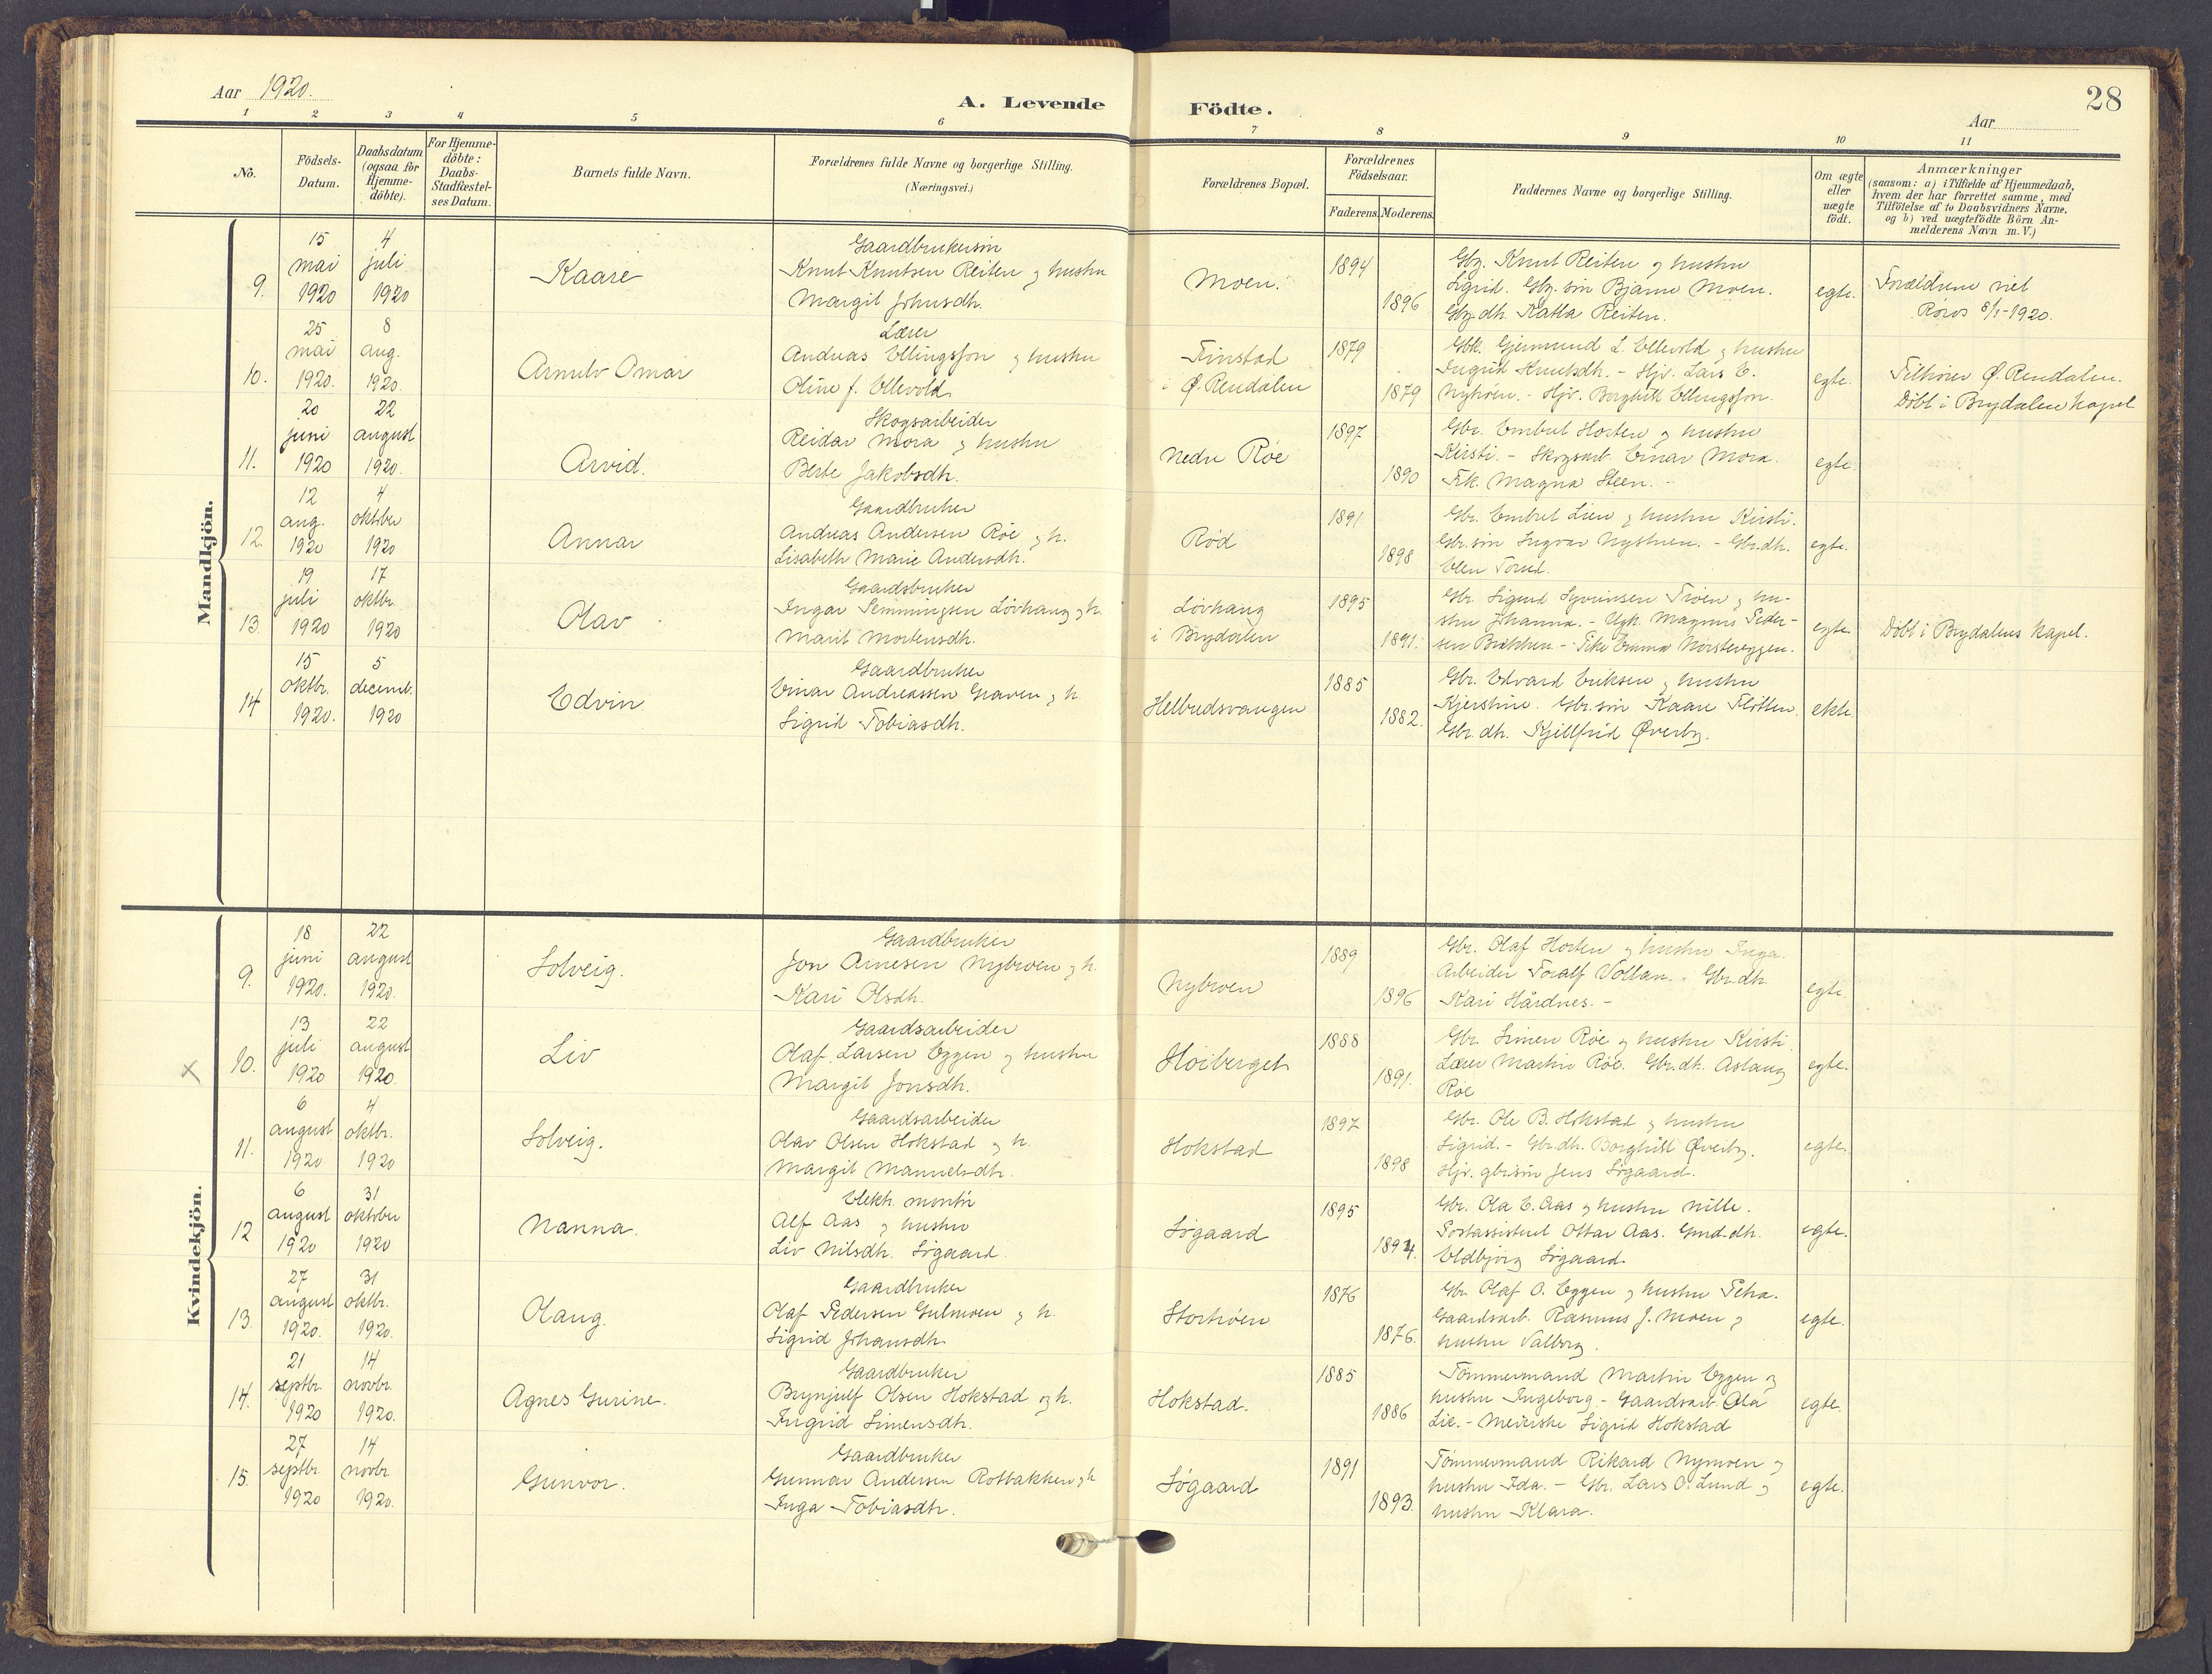 Aar 1920.
A. Levende Födte.
28
Aar
1 2 3 4 5 6 7 8 9 10 11
No.
Födsels-Datum.
Daabsdatum (ogsaa for Hjemme-döbte).
For Hjemme-döbte: Daabs-Stadfæstel-ses Datum.
Barnets fulde Navn.
Forældrenes fulde Navne og borgerlige Stilling.
(Næringsvei.)
Forældrenes Bopæl.
Forældrenes Födselsaar.
Faderens. Moderens.
Faddernes Navne og borgerlige Stilling.
Om ægte eller uægte födt.
Anmærkninger
(saasom: a) i Tilfælde af Hjemmedaab,
hvem der har forrettet samme, med
Tilföielse af to Daabsvidners Navne,
og b) ved uægtefödte Börn An-
melderens Navn m. V.)
Mandkjön.
9.
15 mai 1920
4 juli 1920
Kaare
Gaardbrukersøn
Knut Knutsen Reiten og hustru
Margit Johnsdh.
Moen.
1894
1896
Gbr. Knut Reiten og hustru
Sigrid. Gbr. søn Bjarne Moen.
Gbr.dh. Katla Reiten.
egte.
Forældrene viet
Røros 8/1-1920.
10.
25 mai 1920.
8 aug. 1920.
Arnulv Omar
Lærer
Andreas Ellingsson og hustru
Oline f. Ellevold
Finstad
i Ø. Rendalen
1879
1879
Gbk. Gjermund L. Ellevold og hustru
Ingrid Knutsdh. - Hjv. Lars E.
Nyhøen. - Hjv. Borghild Ellingsson.
egte.
Tilhører Ø. Rendalen.
Døbt i Brydalen kapel
11.
20 juni 1920
22 august 1920.
Arvid.
Skogsarbeider
Reidar Mora og hustru
Berte Jakobsdh.
Nedre Røe
1897
1890
Gbr. Embret Horten og hustru
Kirsti. - Skogsarb. Einar Mora.
Frk. Magna Steen. -
egte.
12.
12 aug. 1920
4 oktober 1920
Annar
Gaardbruker
Andreas Andersen Røe og h.
Lisabeth Marie Andersdh.
Rød
1891
1898
Gbr. Embret Lien og hustru Kirsti.
Gbr.søn Ingvar Nystuen. - Gbr.dh.
Elen Torud.
egte.
13.
19 juli 1920
17 oktbr. 1920
Olav
Gaardsbruker
Ingar Semmingsen Lövhaug og h.
Marit Mortensdh.
Lövhaug
i Brydalen
1895
1891.
Gbr. Sigurd Syversen Trøen og hu-
stru Johanna. - Ugk. Magnus Peder-
sen Brækken - Pike Emma Norsteneggen.
egte
Døbt i Brydalens kapel.
14
15 oktbr. 1920.
5 decemb. 1920
Edvin
Gaardbruker
Einar Andreassen Graven og h.
Sigrid Tobiasdh.
Helbudsvangen
1885
1882.
Gbr. Edvard Eriksen og hustru
Kjerstine. Gbr.søn Kaare Fløtten.
Gbr.dh. Kjellfrid Øverby.
ekte
Kvindekjön.
9.
18 juni 1920.
22 august 1920.
Solveig.
Gaardbruker
Jon Arnesen Nybroen og h.
Kari Olsdh.
Nybroen
1889
1896
Gbr. Olaf Horten og hustru Inga.
Arbeider Toralf Vollan. - Gbr.dh.
Kari Hårdnes. -
egte.
x
10.
13 juli 1920
22 august 1920.
Liv
Gaardsarbeider
Olaf Larsen Eggen og hustru
Margit Jonsdh.
Høiberget
1888
1891.
Gbr. Simen Røe og hustru Kirsti.
Lærer Martin Røe. Gbr.dh. Aslaug
Røe
egte.
11.
6 august 1920
4 oktbr. 1920
Solveig.
Gaardsarbeider
Olav Olsen Hokstad og h.
Margit Manuelsdh.
Hokstad
1897
1898
Gbr. Ole B. Hokstad og hustru
Sigrid. - Gbr.dh. Borghild Øverby.
Hjv. gbr.søn Jens Søgaard.
egte.
12
6 august 1920
31 oktober 1920
Nanna.
Elekt. montør
Alf Aas og hustru
Liv Nilsdh. Søgaard.
Søgaard
1895
1894.
Gbr. Ola E. Aas og hustru Nille.
Postassistent Ottar Aas. Gmd.dh.
Eldbjørg Søgaard.
egte.
13.
27 august 1920.
31 oktbr. 1920.
Olaug.
Gaardbruker
Olaf Pedersen Gulmoen og h.
Sigrid Johansdh.
Storhøen
1876
1876.
Gbr. Olaf O. Eggen og hustru Petra.
Gaardsarb. Rasmus J. Moen og
hustru Valborg.
egte.
14.
21 septbr. 1920
14 novbr. 1920.
Agnes Gurine.
Gaardbruker
Brynjulf Olsen Hokstad og h.
Ingrid Simensdh.
Hokstad.
1885
1886
Tømmermand Martin Eggen og
hustru Ingeborg. - Gaardsarb. Ola
Lie. - Meierske Sigrid Hokstad
egte.
15.
27 septbr. 1920
14 novbr. 1920.
Gunvor.
Gaardbruker
Gunnar Andersen Rotbakken og h
Inga Tobiasdh.
Søgaard
1891
1893.
Tømmermand Rikard Nymoen og
hustru Ida. - Gbr. Lars O. Lund og
hustru Klara.
egte.